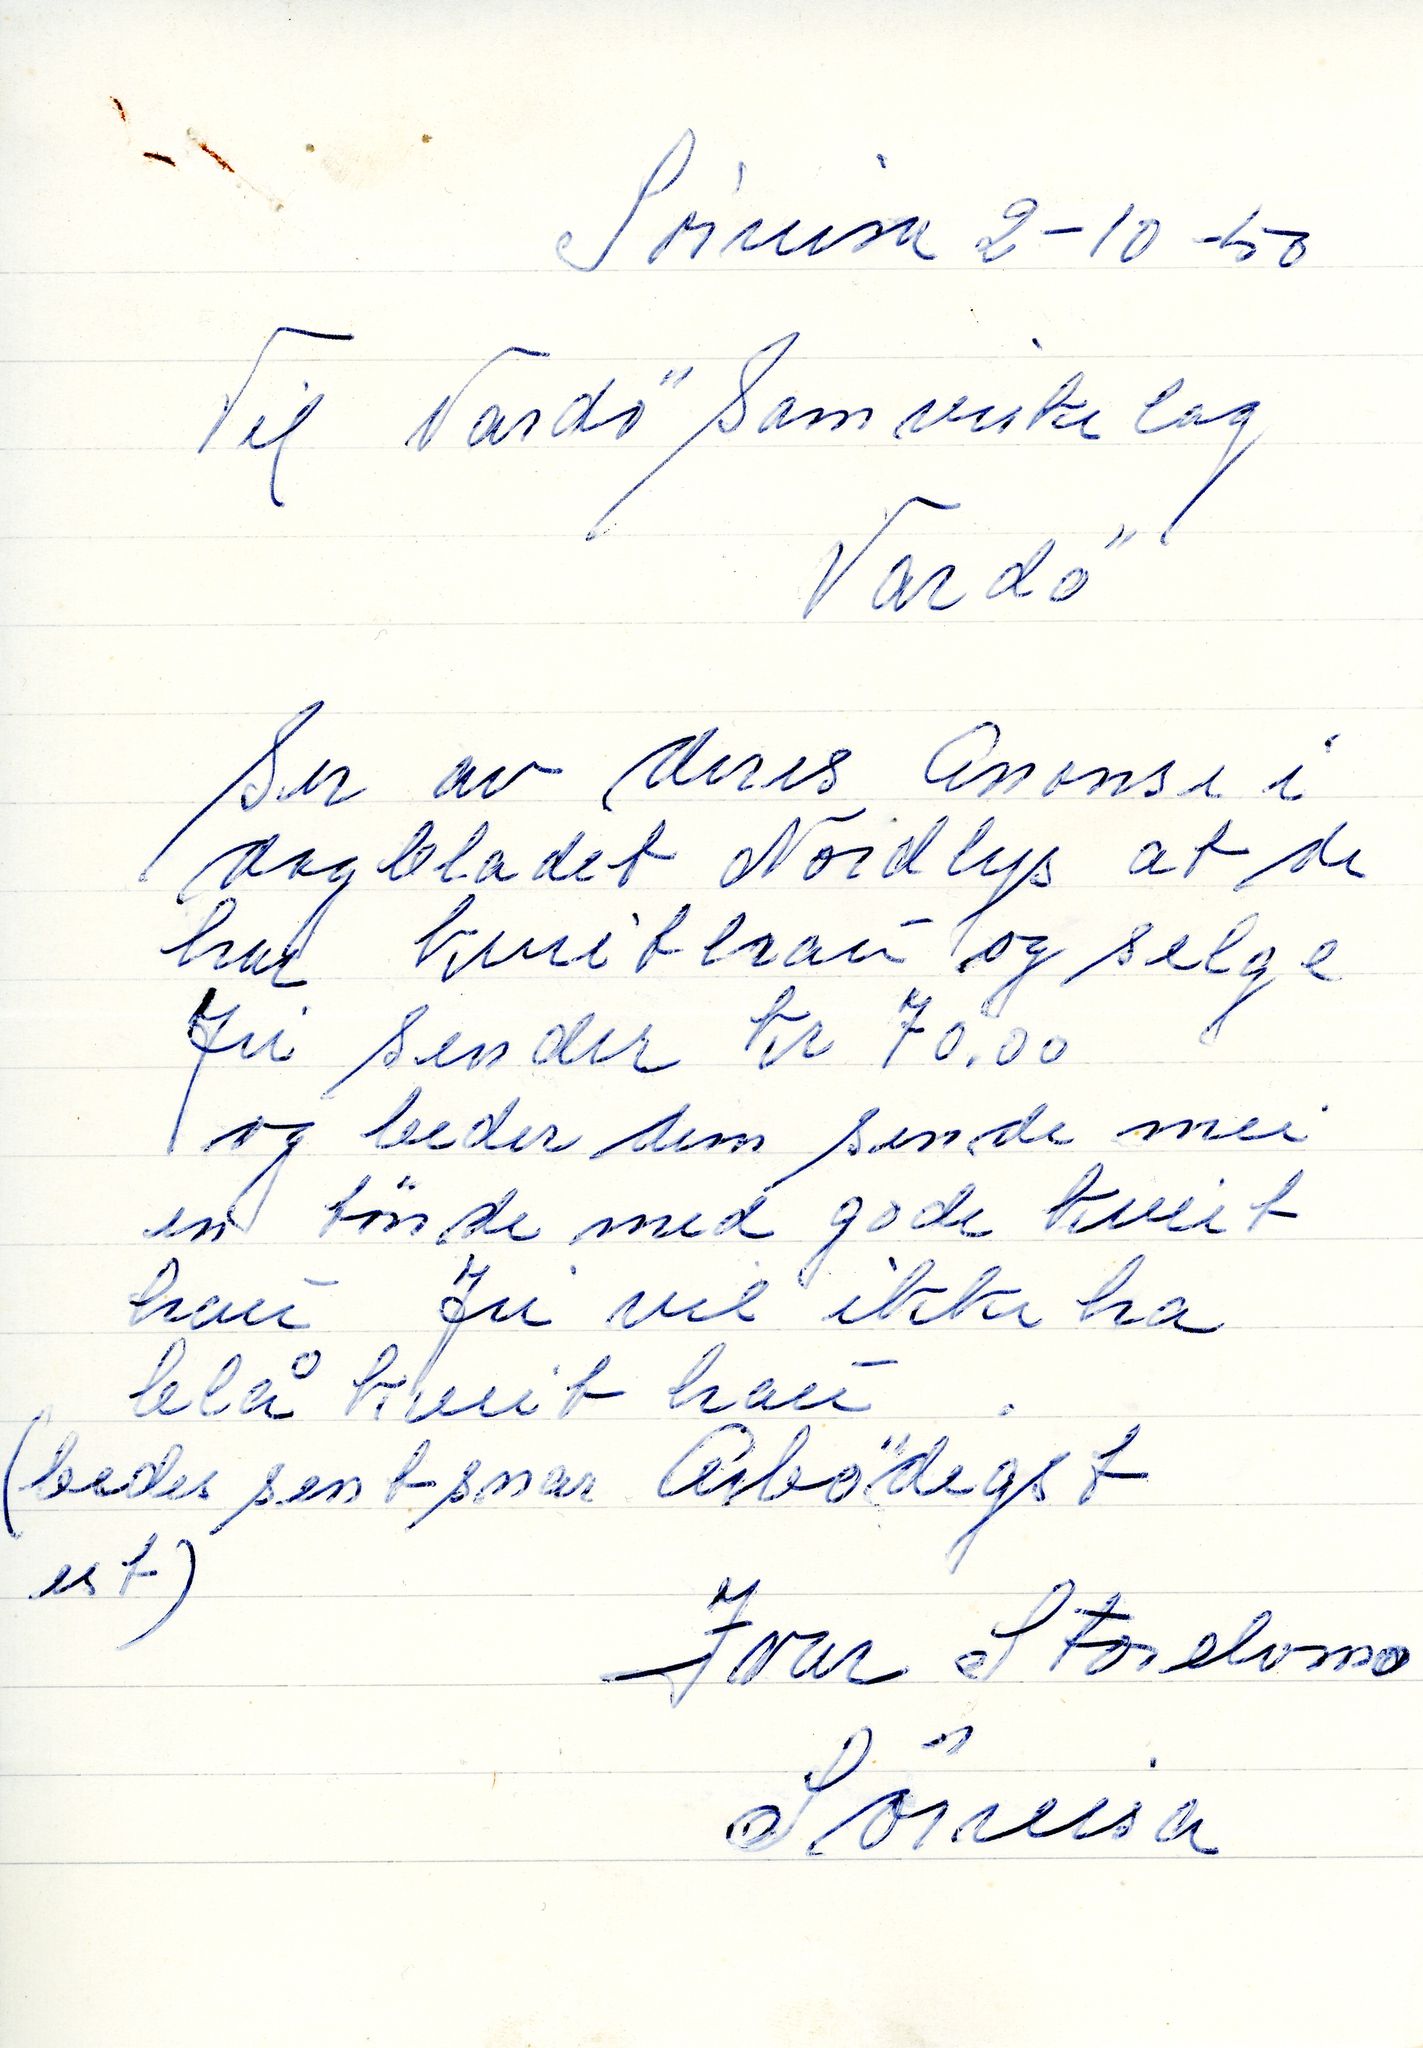 Sörreisa 2-10-50
Til Vardö Samvirkelag
Vardö
Ser av deres Anonse i
dagbladet Nordlys at de
har kveithau og selge
Jei sender kr 70.00
og beder dem sende mei
en tönde med gode kveit
hau Jei vil ikke ha
blå kveit hau.
(bedes sent snar Ærbödigst
est)
Ivar Stordomo
Sörreisa